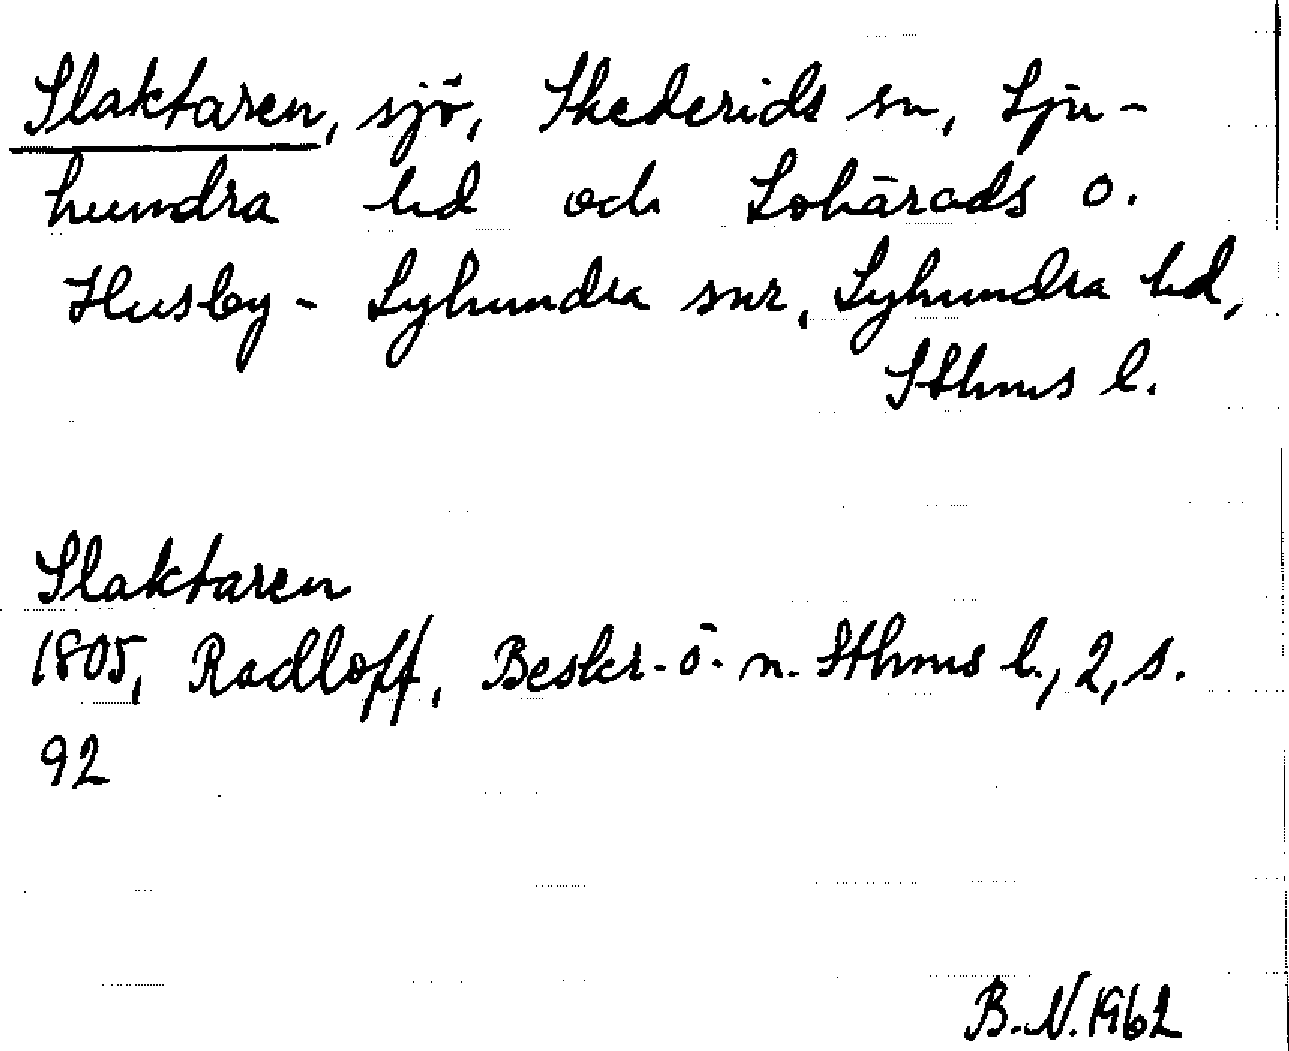 Slaktaren, sjö, Skederids sn, Sju-
hundra hd och Lohärads o.
Husby-Lyhundra snr, Lyhundra hd,
Sthms l.
Slaktaren
1805, Radloff, Beskr. ö. n. Sthms l., 2, s.
92
B. N. 1962